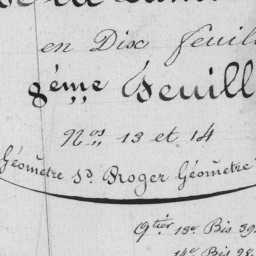 en Dix feuill
8ème feuill
Nos 13 et 14
Géomètre Sr. Proger Géomètre
9tier 13e Bis 39
14e Bis 28